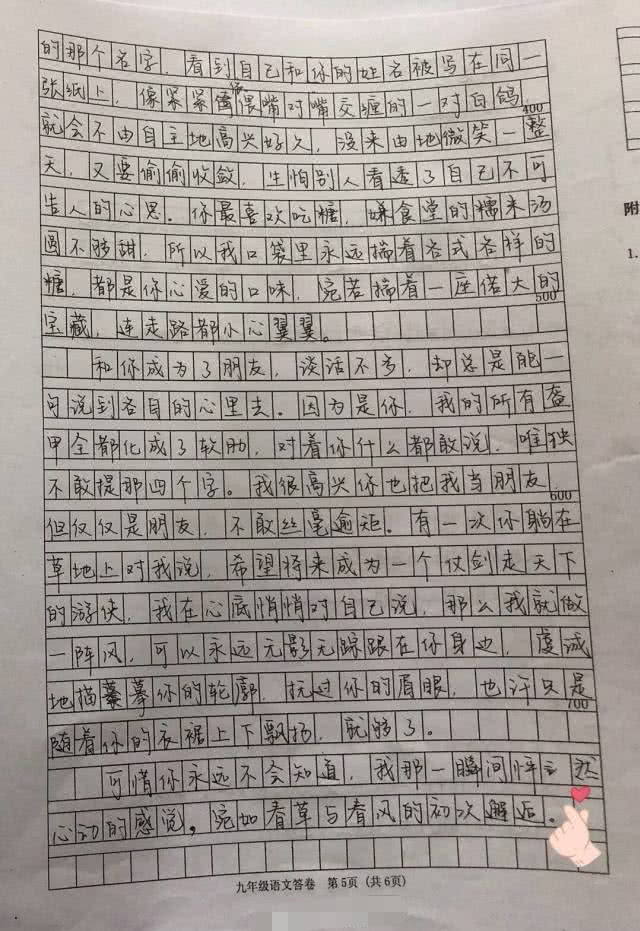 的那个名字，看到自己和你的姓名被写在同一
张纸上，像紧紧依偎嘴对嘴交缠的一对白鸽，
400
就会不由自主地高兴好久，没来由地微笑一整
天，又要偷偷收敛，生怕别人看透了自己不可
告人的心思。你最喜欢吃糖，嫌食堂的糯米汤
圆不够甜，所以我口袋里永远揣着各式各样的
糖，都是你心爱的口味，宛若揣着一座偌大的
500
宝藏，连走路都小心翼翼。
和你成为了朋友，谈话不多，却总是能一
句说到各自的心里去。因为是你，我的所有盔
甲全都化成了软肋，对着你什么都敢说，唯独
不敢提那四个字。我很高兴你也把我当朋友，
600
但仅仅是朋友，不敢丝毫逾矩。有一次你躺在
草地上对我说，希望将来成为一个仗剑走天下
的游侠，我在心底悄悄对自己说，那么我就做
一阵风，可以永远无影无踪跟在你身边，虔诚
地描摹你的轮廓，抚过你的眉眼，也许只是
700
随着你的衣裾上下飘扬，就够了。
可惜你永远不会知道，我那一瞬间怦然
心动的感觉，宛如春草与春风的初次邂逅。
九年级语文答卷 第5页（共6页）
附
1.